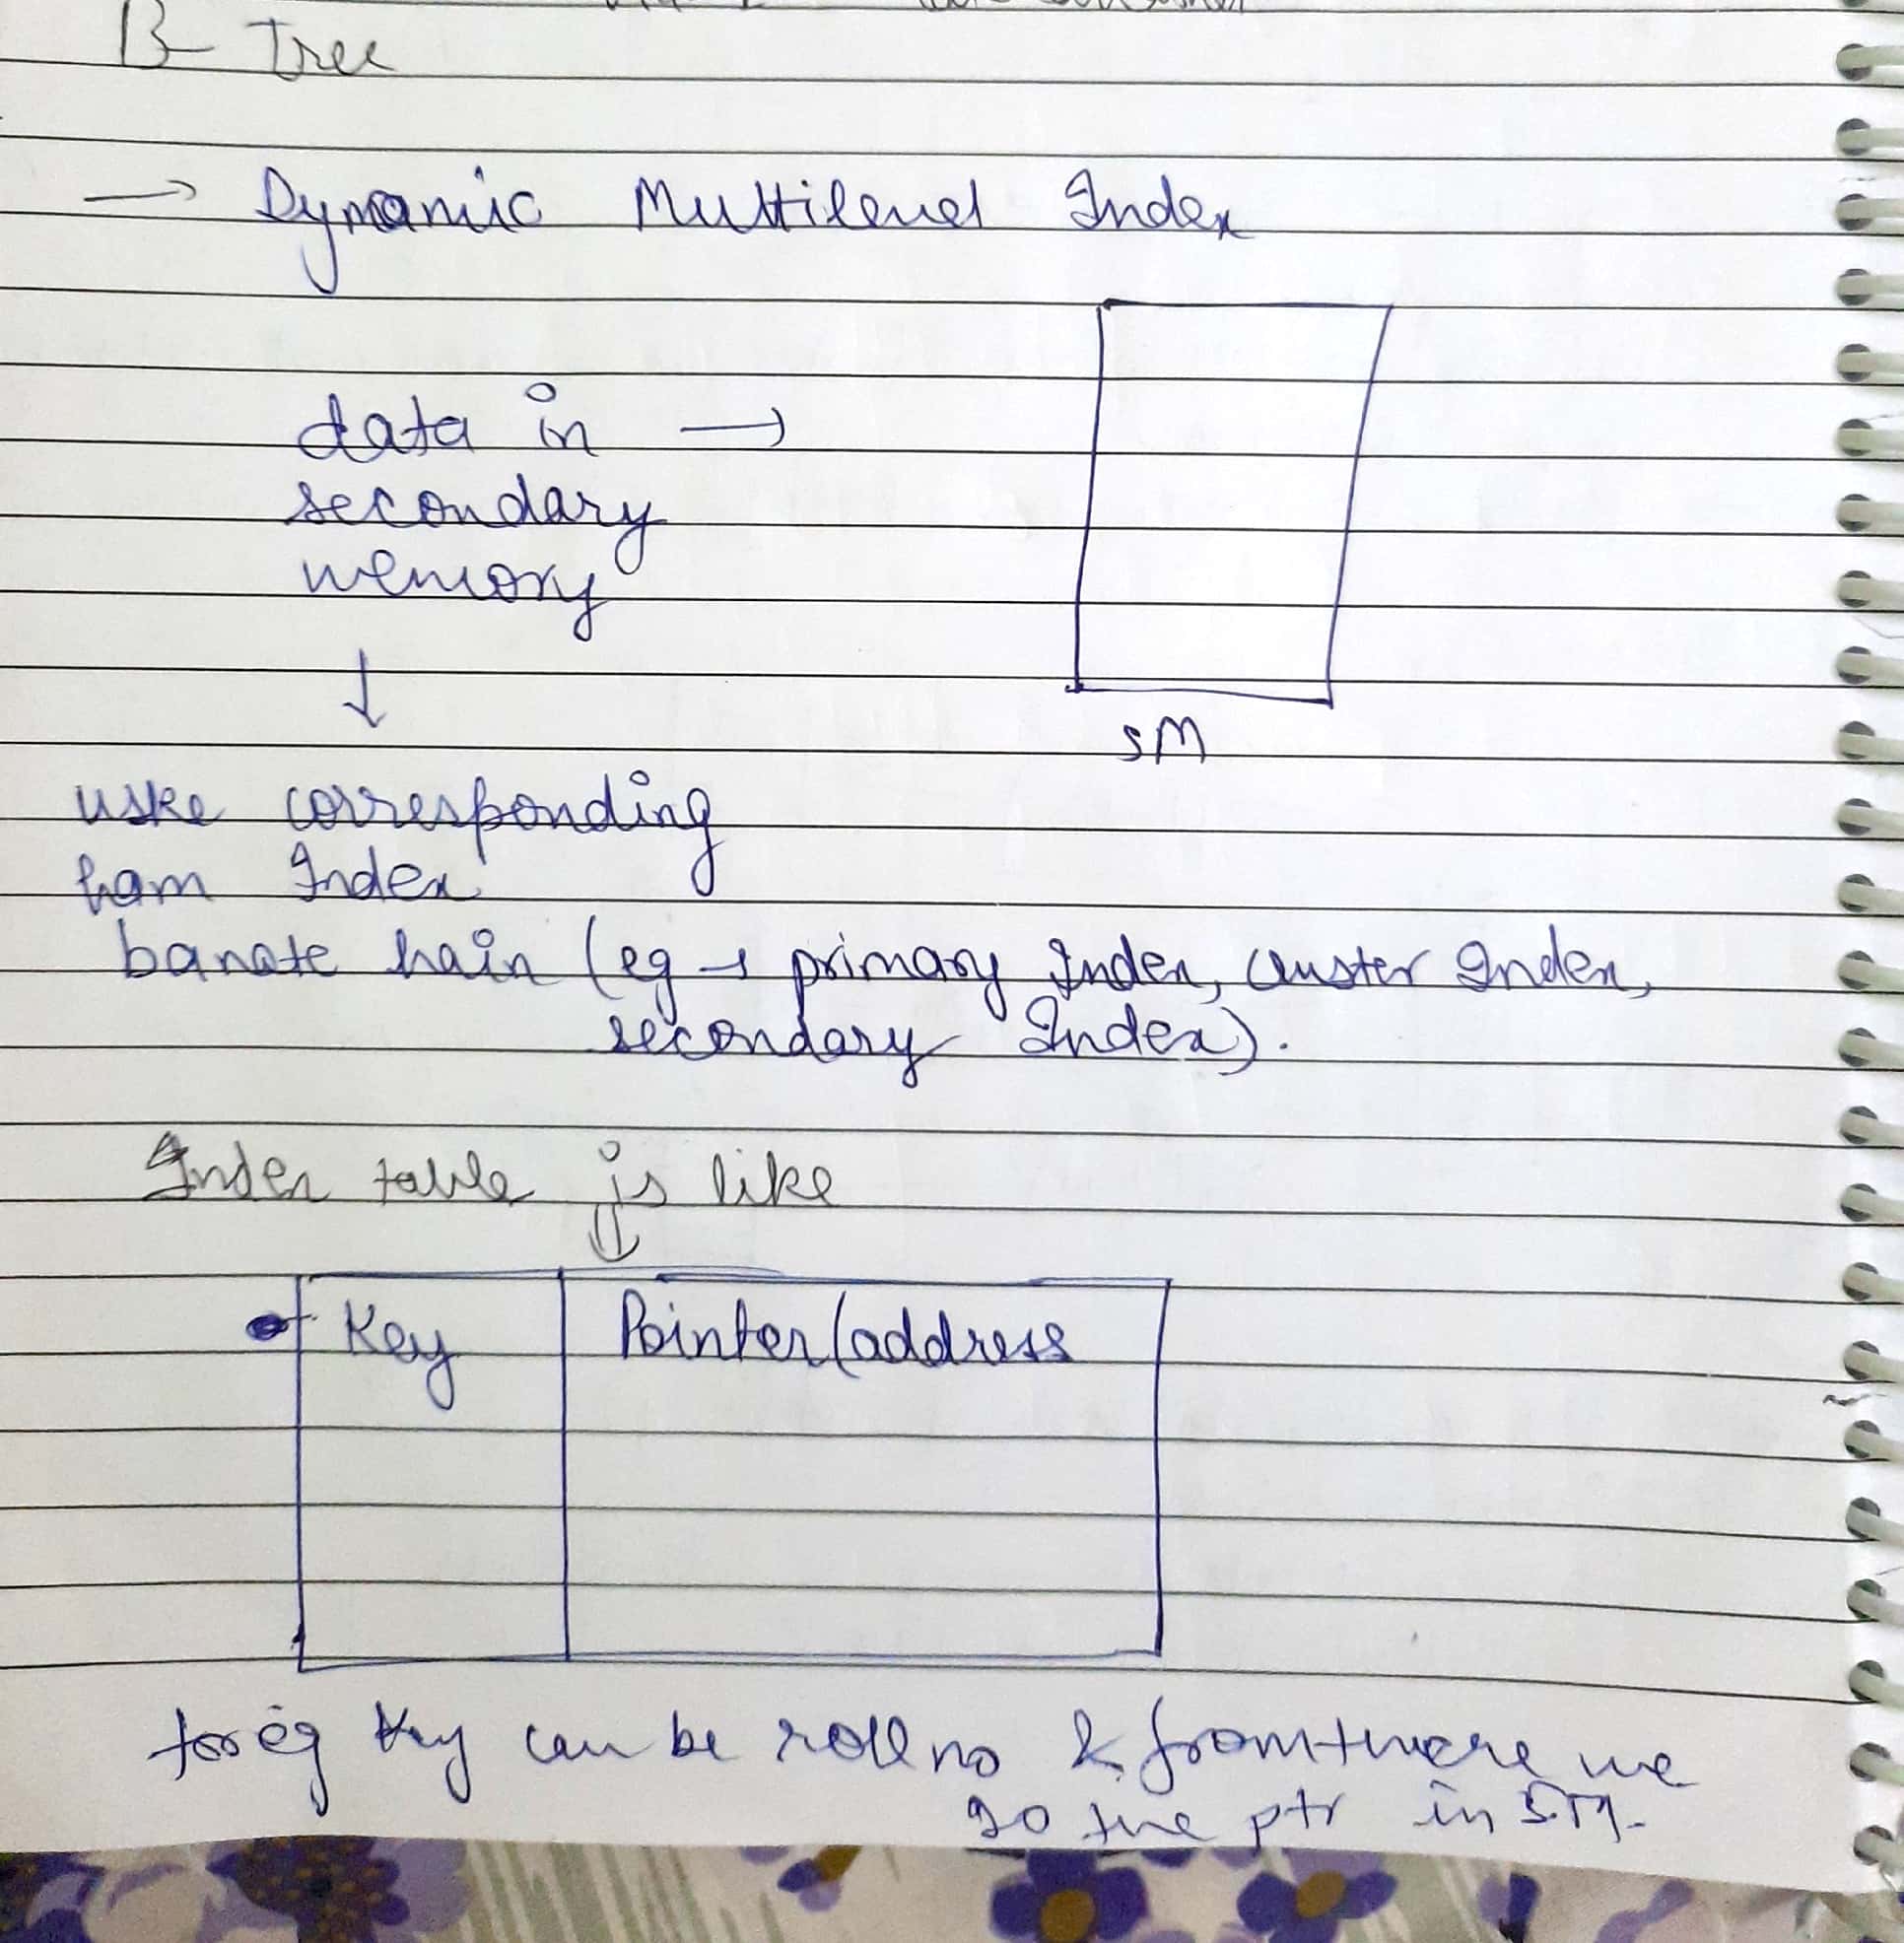 B Tree
→ Dynamic Multilevel Index
data in →
secondary
memory
↓
SM
uske corresponding
ham Index
banate hain (eg → primary Index, Cluster Index,
secondary Index).
Index table is like
Key Pointer (address
for eg key can be roll no & from there we
go the ptr in S.M.